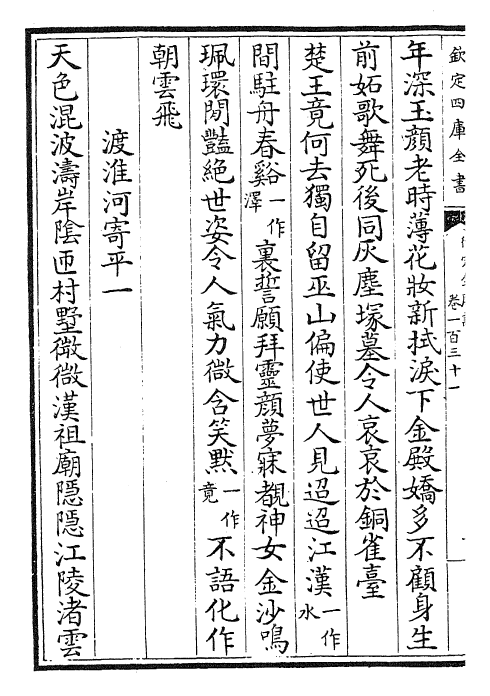 欽定四庫全書
卷一百三十一
年深玉顏老時薄花妝新拭淚下金殿嬌多不顧身生
前妬歌舞死後同灰塵塚墓令人哀哀於銅雀臺
楚王竟何去獨自留巫山偏使世人見迢迢江漢一作水
間駐舟春谿一作澤裏誓願拜靈顏夢寐覩神女金沙鳴
珮環閒豔絕世姿令人氣力微含笑默一作竟不語化作
朝雲飛
渡淮河寄平一
天色混波濤岸陰匝村墅微微漢祖廟隱隱江陵渚雲